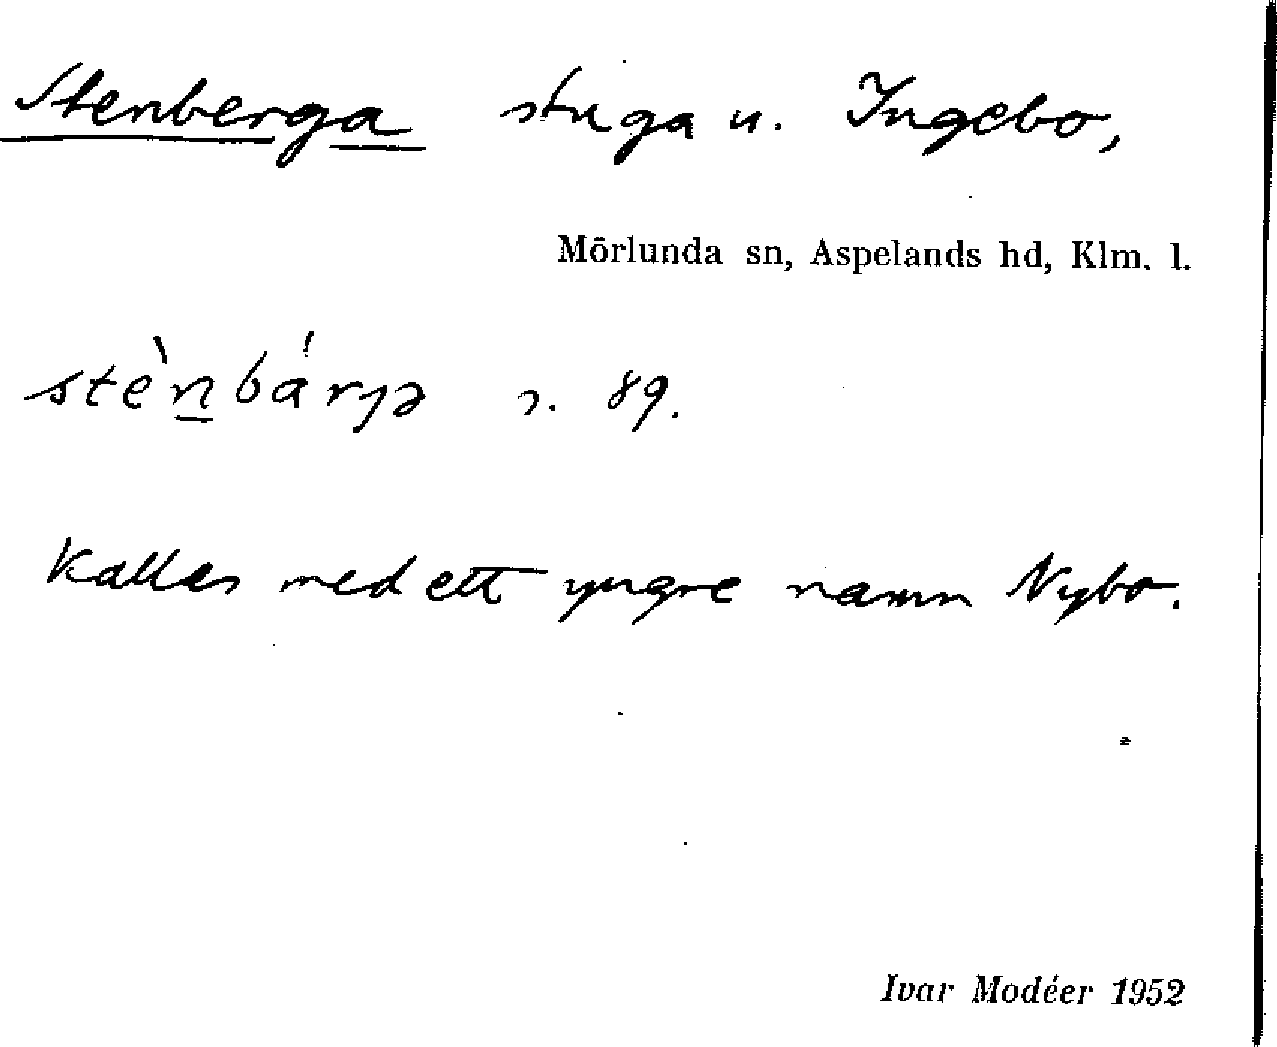 Stenberga stuga u. Ingebo,
Mörlunda sn, Aspelands hd, Klm. l.
stè̱nbárjə s. 89.
Kallas med ett yngre namn Nybo.
Ivar Modéer 1952